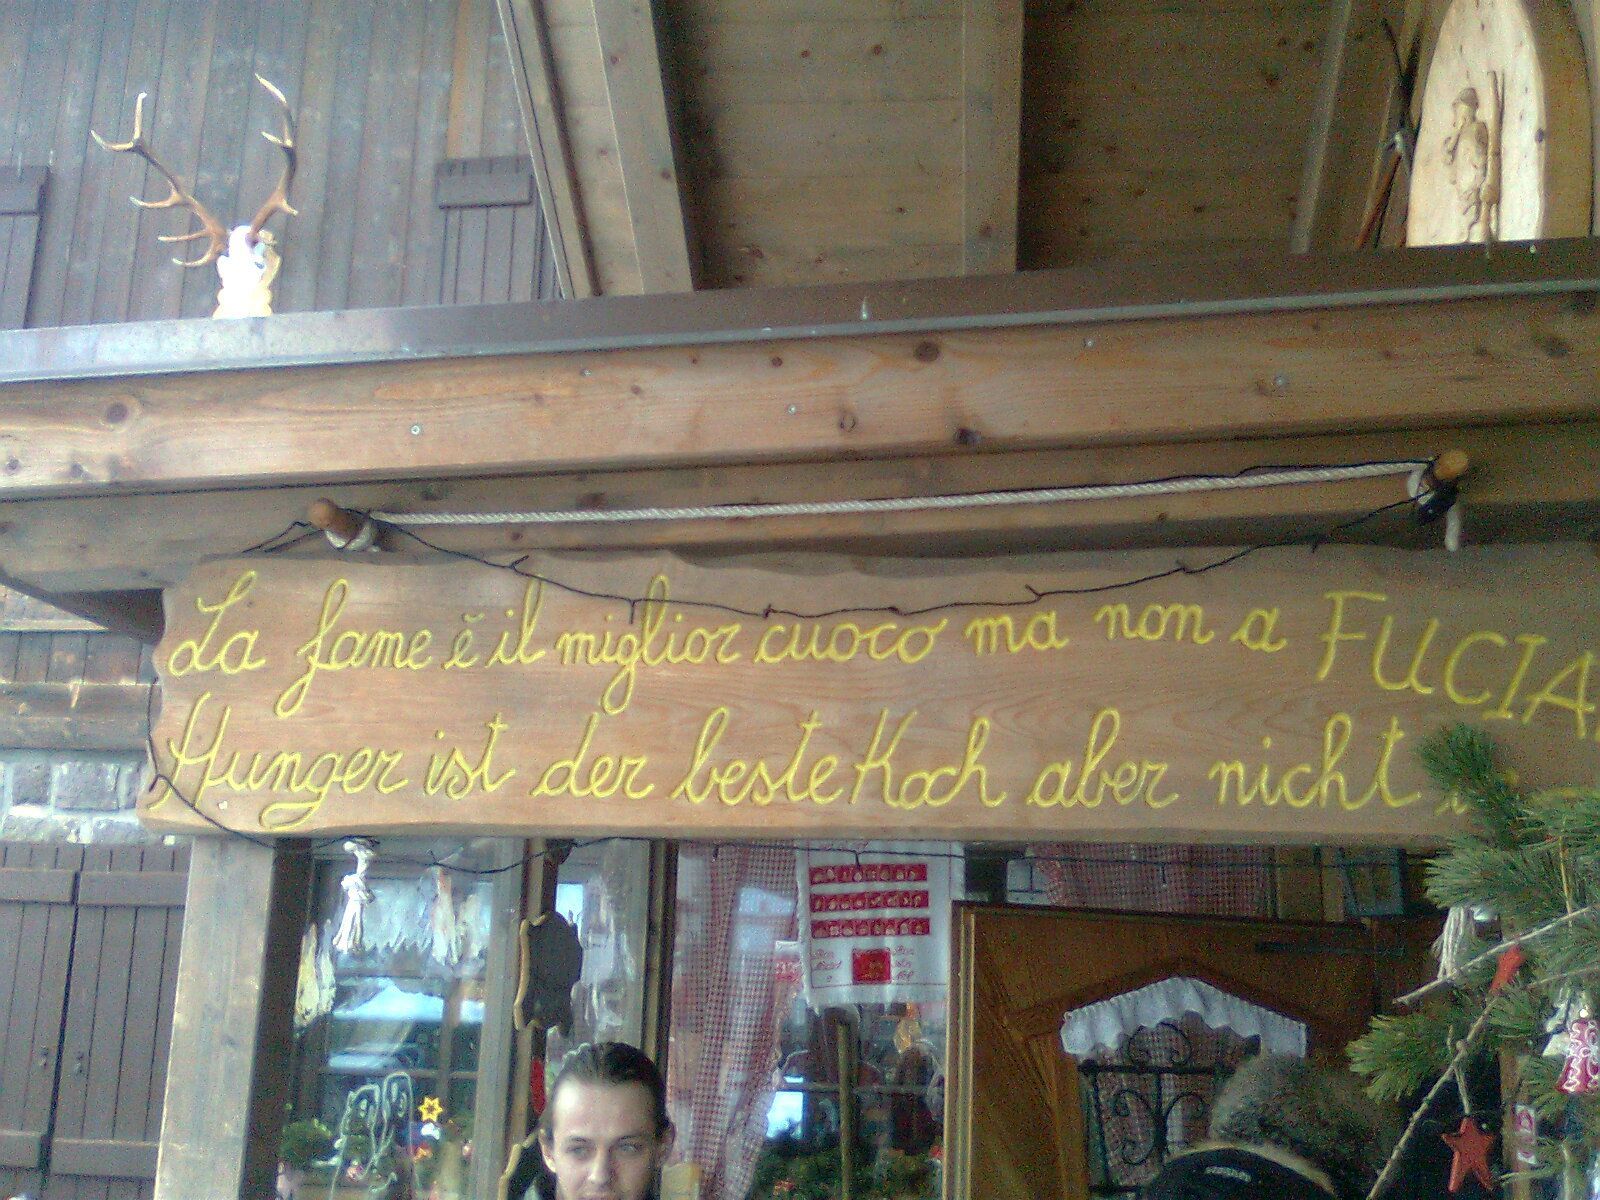 La fame è il miglior cuoco ma non a FUCIA
Hunger ist der beste Koch aber nicht